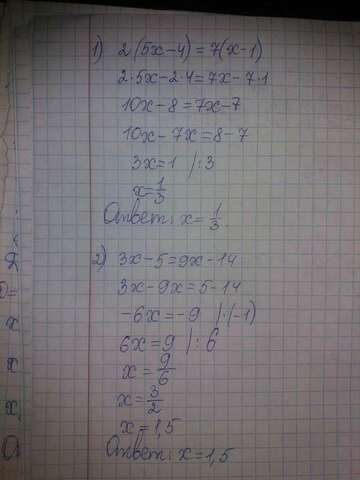 1) 2(5x-4)=7(x-1)
2·5x-2·4=7x-7·1
10x-8=7x-7
10x-7x=8-7
3x=1 |:3
x=1/3
Ответ: x=1/3.
2) 3x-5=9x-14
3x-9x=5-14
-6x=-9 |·(-1)
6x=9 |:6
x=9/6
x=3/2
x=1,5
Ответ: x=1,5